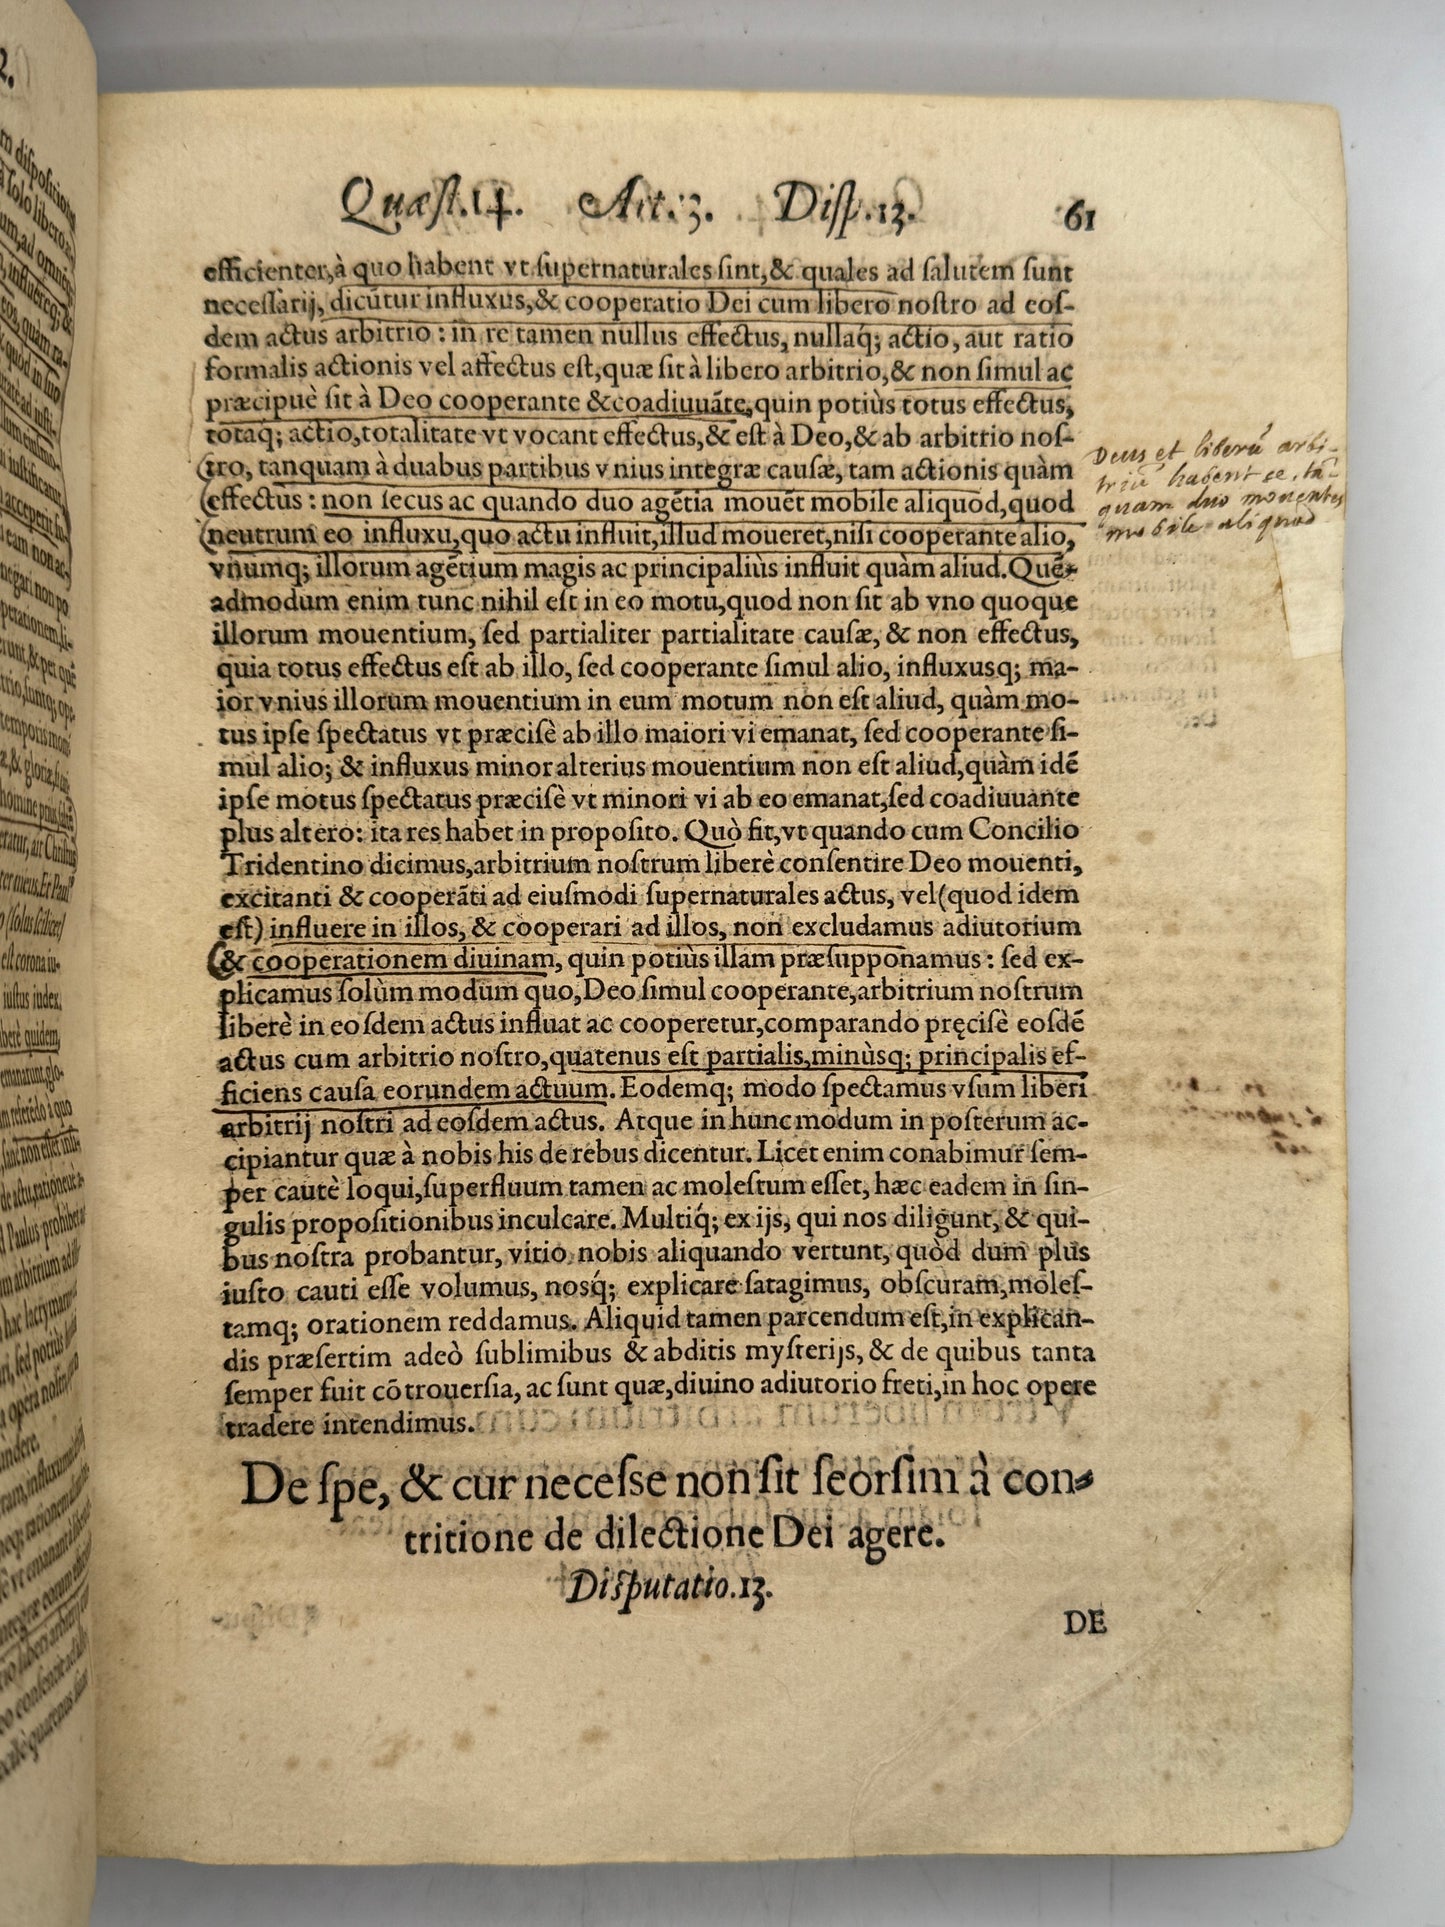 Quæſt.14. Art.3. Diſp.13. 61
efficienter,à quo habent vt ſupernaturales ſint,& quales ad ſalutem ſunt
neceſſarij, dicūtur influxus,& cooperatio Dei cum libero noſtro ad eoſ-
dem actus arbitrio : in re tamen nullus effectus, nullaq́; actio, aut ratio
formalis actionis vel affectus eſt,quæ ſit à libero arbitrio,& non ſimul ac
præcipuè ſit à Deo cooperante &coadiuuāte,quin potiùs totus effectus,
totaq́; actio,totalitate vt vocant effectus,& eſt à Deo,& ab arbitrio noſ-
tro, tanquam à duabus partibus vnius integræ cauſæ, tam actionis quàm
effectus : non ſecus ac quando duo agētia mouēt mobile aliquod,quod
neutrum eo influxu,quo actu influit,illud moueret,niſi cooperante alio,
vnumq; illorum agētium magis ac principaliùs influit quàm aliud.Quē-
admodum enim tunc nihil eſt in eo motu,quod non ſit ab vno quoque
illorum mouentium, ſed partialiter partialitate cauſæ, & non effectus,
quia totus effectus eſt ab illo, ſed cooperante ſimul alio, influxusq; ma-
ior vnius illorum mouentium in eum motum non eſt aliud, quàm mo-
tus ipſe ſpectatus vt præciſè ab illo maiori vi emanat, ſed cooperante ſi-
mul alio; & influxus minor alterius mouentium non eſt aliud,quàm idē
ipſe motus ſpectatus præciſè vt minori vi ab eo emanat,ſed coadiuuante
plus altero: ita res habet in propoſito. Quò fit,vt quando cum Concilio
Tridentino dicimus,arbitrium noſtrum liberè conſentire Deo mouenti,
excitanti & cooperāti ad eiuſmodi ſupernaturales actus, vel(quod idem
eſt) influere in illos, & cooperari ad illos, non excludamus adiutorium
& cooperationem diuinam, quin potiùs illam præſupponamus : ſed ex-
plicamus ſolùm modum quo,Deo ſimul cooperante,arbitrium noſtrum
liberè in eoſdem actus influat ac cooperetur,comparando pręciſè eoſdē
actus cum arbitrio noſtro,quatenus eſt partialis,minùsq; principalis ef-
ficiens cauſa eorundem actuum. Eodemq; modo ſpectamus vſum liberi
arbitrij noſtri ad eoſdem actus. Atque in hunc modum in poſterum ac-
cipiantur quæ à nobis his de rebus dicentur. Licet enim conabimur ſem-
per cautè loqui,ſuperfluum tamen ac moleſtum eſſet, hæc eadem in ſin-
gulis propoſitionibus inculcare. Multiq́; ex ijs, qui nos diligunt, & qui-
bus noſtra probantur, vitio nobis aliquando vertunt, quòd dum plus
iuſto cauti eſſe volumus, nosq́; explicare ſatagimus, obſcuram,moleſ-
tamq; orationem reddamus. Aliquid tamen parcendum eſt,in explican-
dis præſertim adeò ſublimibus & abditis myſterijs, & de quibus tanta
ſemper fuit cōtrouerſia, ac ſunt quæ,diuino adiutorio freti,in hoc opere
tradere intendimus.
De ſpe, & cur neceſse non ſit ſeorſim à con-
tritione de dilectione Dei agere.
Diſputatio.13.
DE
Deus et liberū arbi-
triū habent se tā-
quam duo mouentes
mobile aliquod